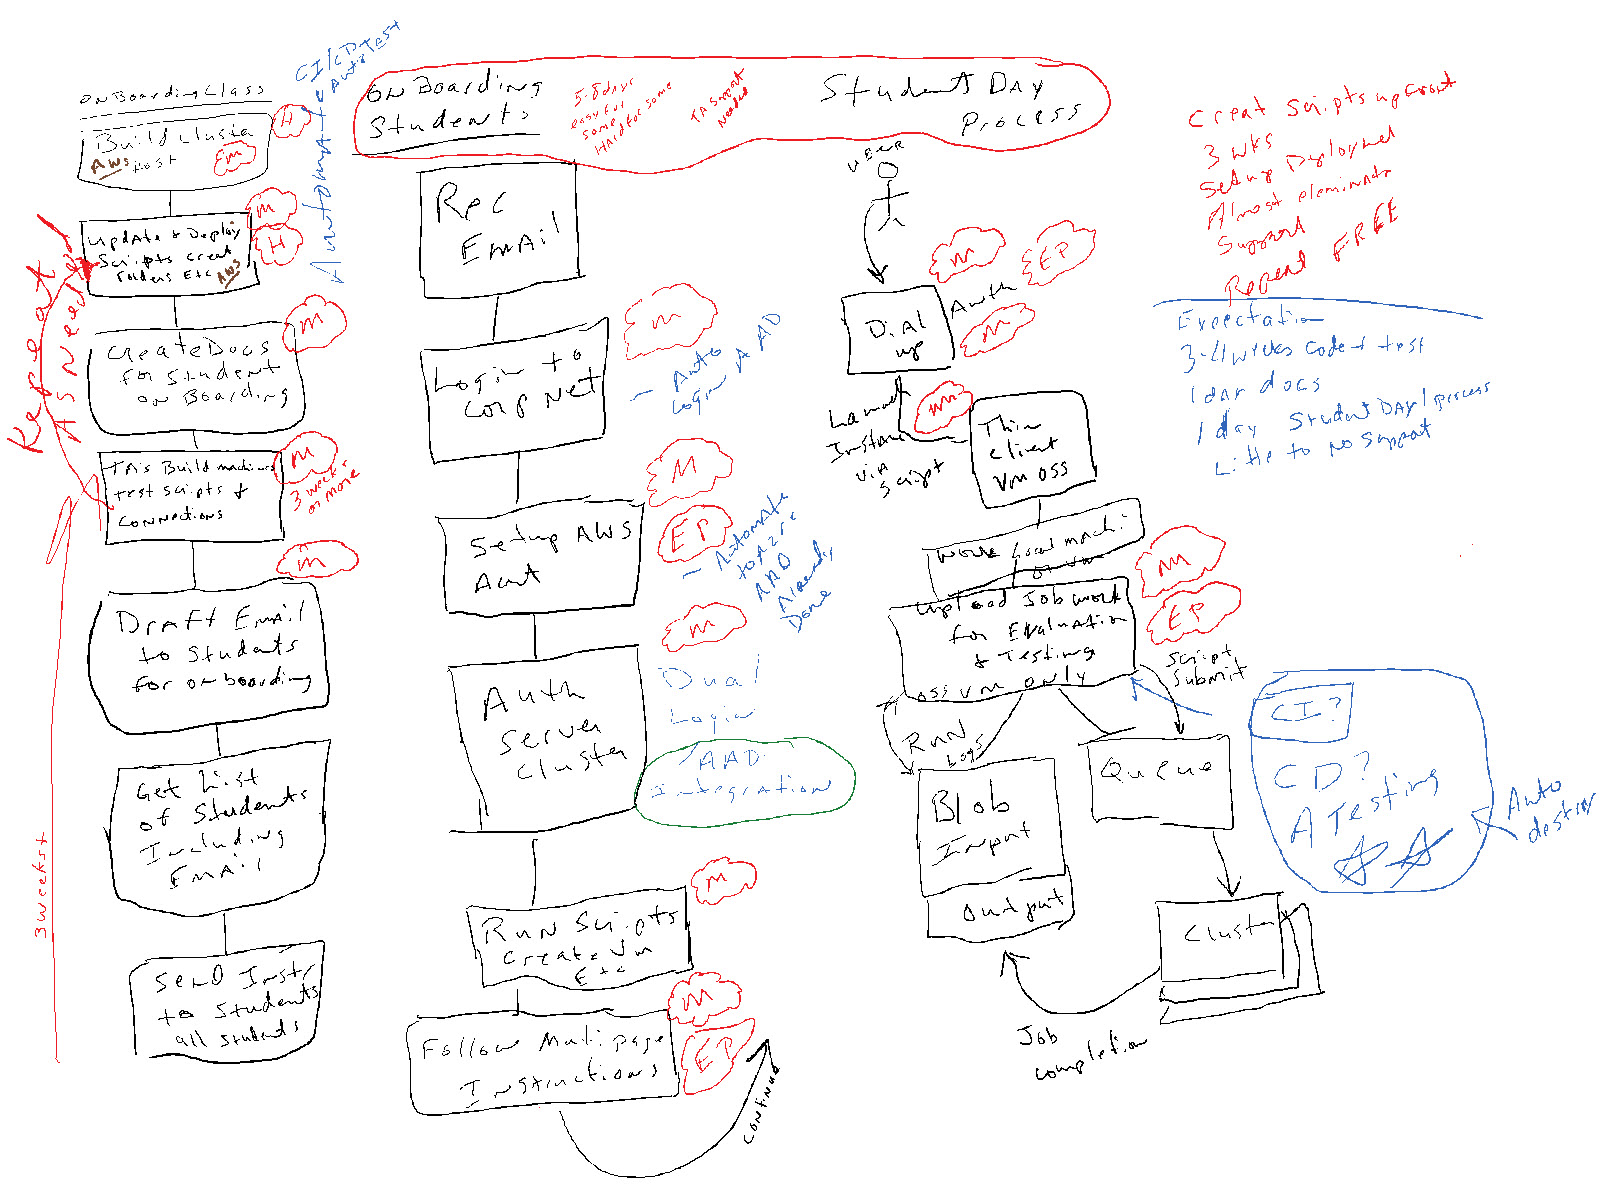 ONBoardingClass
Build Cluster
AWS Host
H
EM
CI/CD
Auto Test
Automate
Update & Deploy
Scripts Creat
Folders Etc AWS
M
H
Repeat
AS Needed
Create Docs
for Student
ON Boarding
M
TA's Build machines
test Scripts &
CONNections
M
3 weeks
or more
M
Draft Email
to Students
for onboarding
Get List
of Students
Including
Email
Send Instr
to Students
all students
3 weeks+
ON Boarding
Students
5-8 days
easy for
some
Hard for some
TA Support
Needed
Student Day
Process
Rec
Email
Login to
Corp Net
M
- Auto
Login A AD
Setup AWS
Acnt
M
EP
- Automate
to Azure
AAD
Already
Done
Auth
Server
Cluster
M
Dual
Login
AAD
Integration
Run Scripts
Create Vm
Etc
M
Follow Multipage
Instructions
M
EP
Continue
USER
Dial
up
Auth
M
EP
M
Launch
Instance
via
Script
M
Thin
client
Vm OSS
Work local machi
or vm
Upload Job work
for Evaluation
& Testing
OSS Vm ONLY
M
EP
Script
Submit
Run
Logs
Blob
Input
Output
Queue
Cluster
Job
completion
CI?
CD?
A Testing
Auto
destroy
Creat Scripts upfront
3 wks
Setup Deploymet
Almost eleminate
Support
Repeat FREE
Expectation
3-4 wks code & test
1 day docs
1 day Student DAY/process
Little to No Support